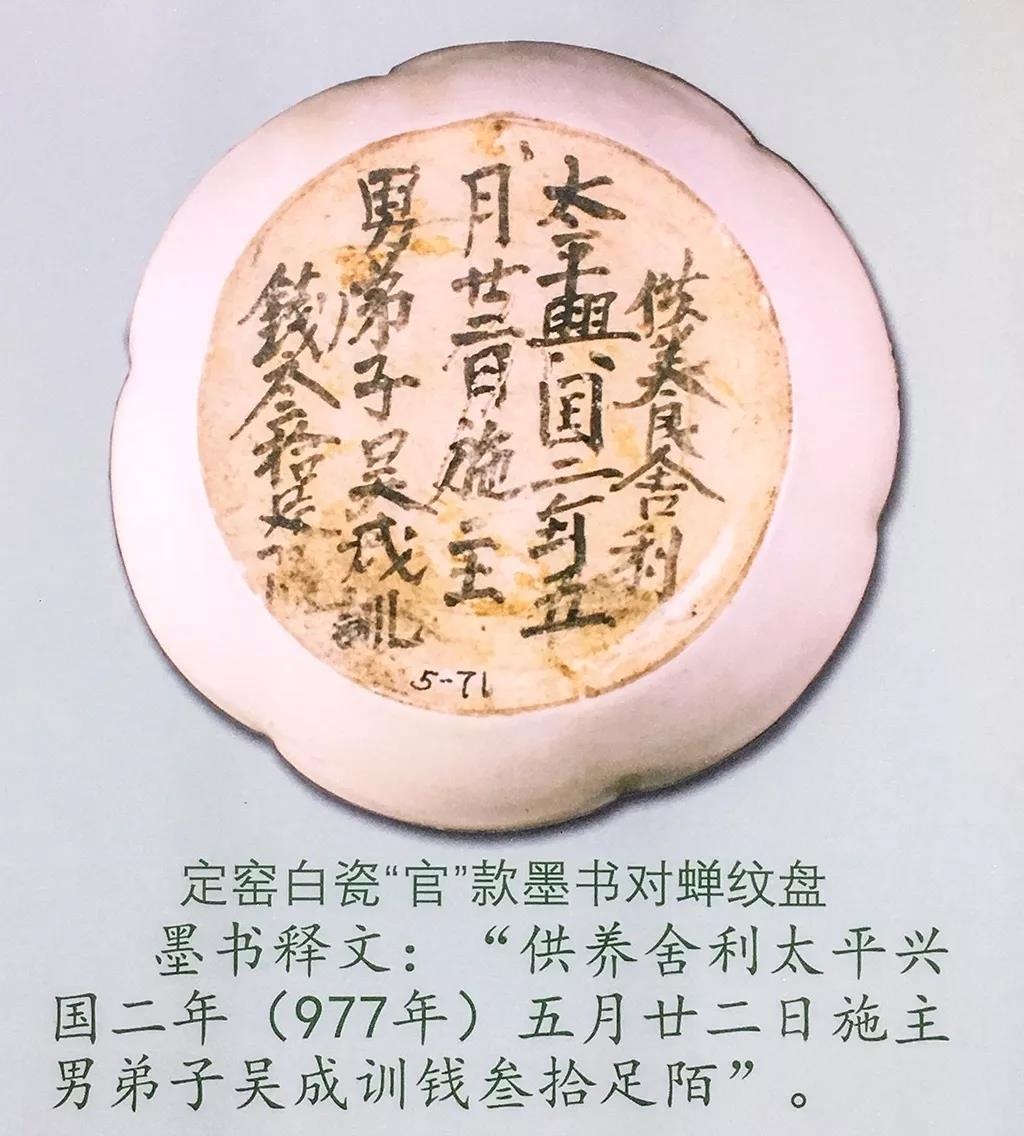 供養舍利
太平興国二年五
月廿二日施主
男弟子吴成訓
錢叁拾足陌
5-71
定窑白瓷“官”款墨书对蝉纹盘
墨书释文：“供养舍利太平兴
国二年（977年）五月廿二日施主
男弟子吴成训钱叁拾足陌”。